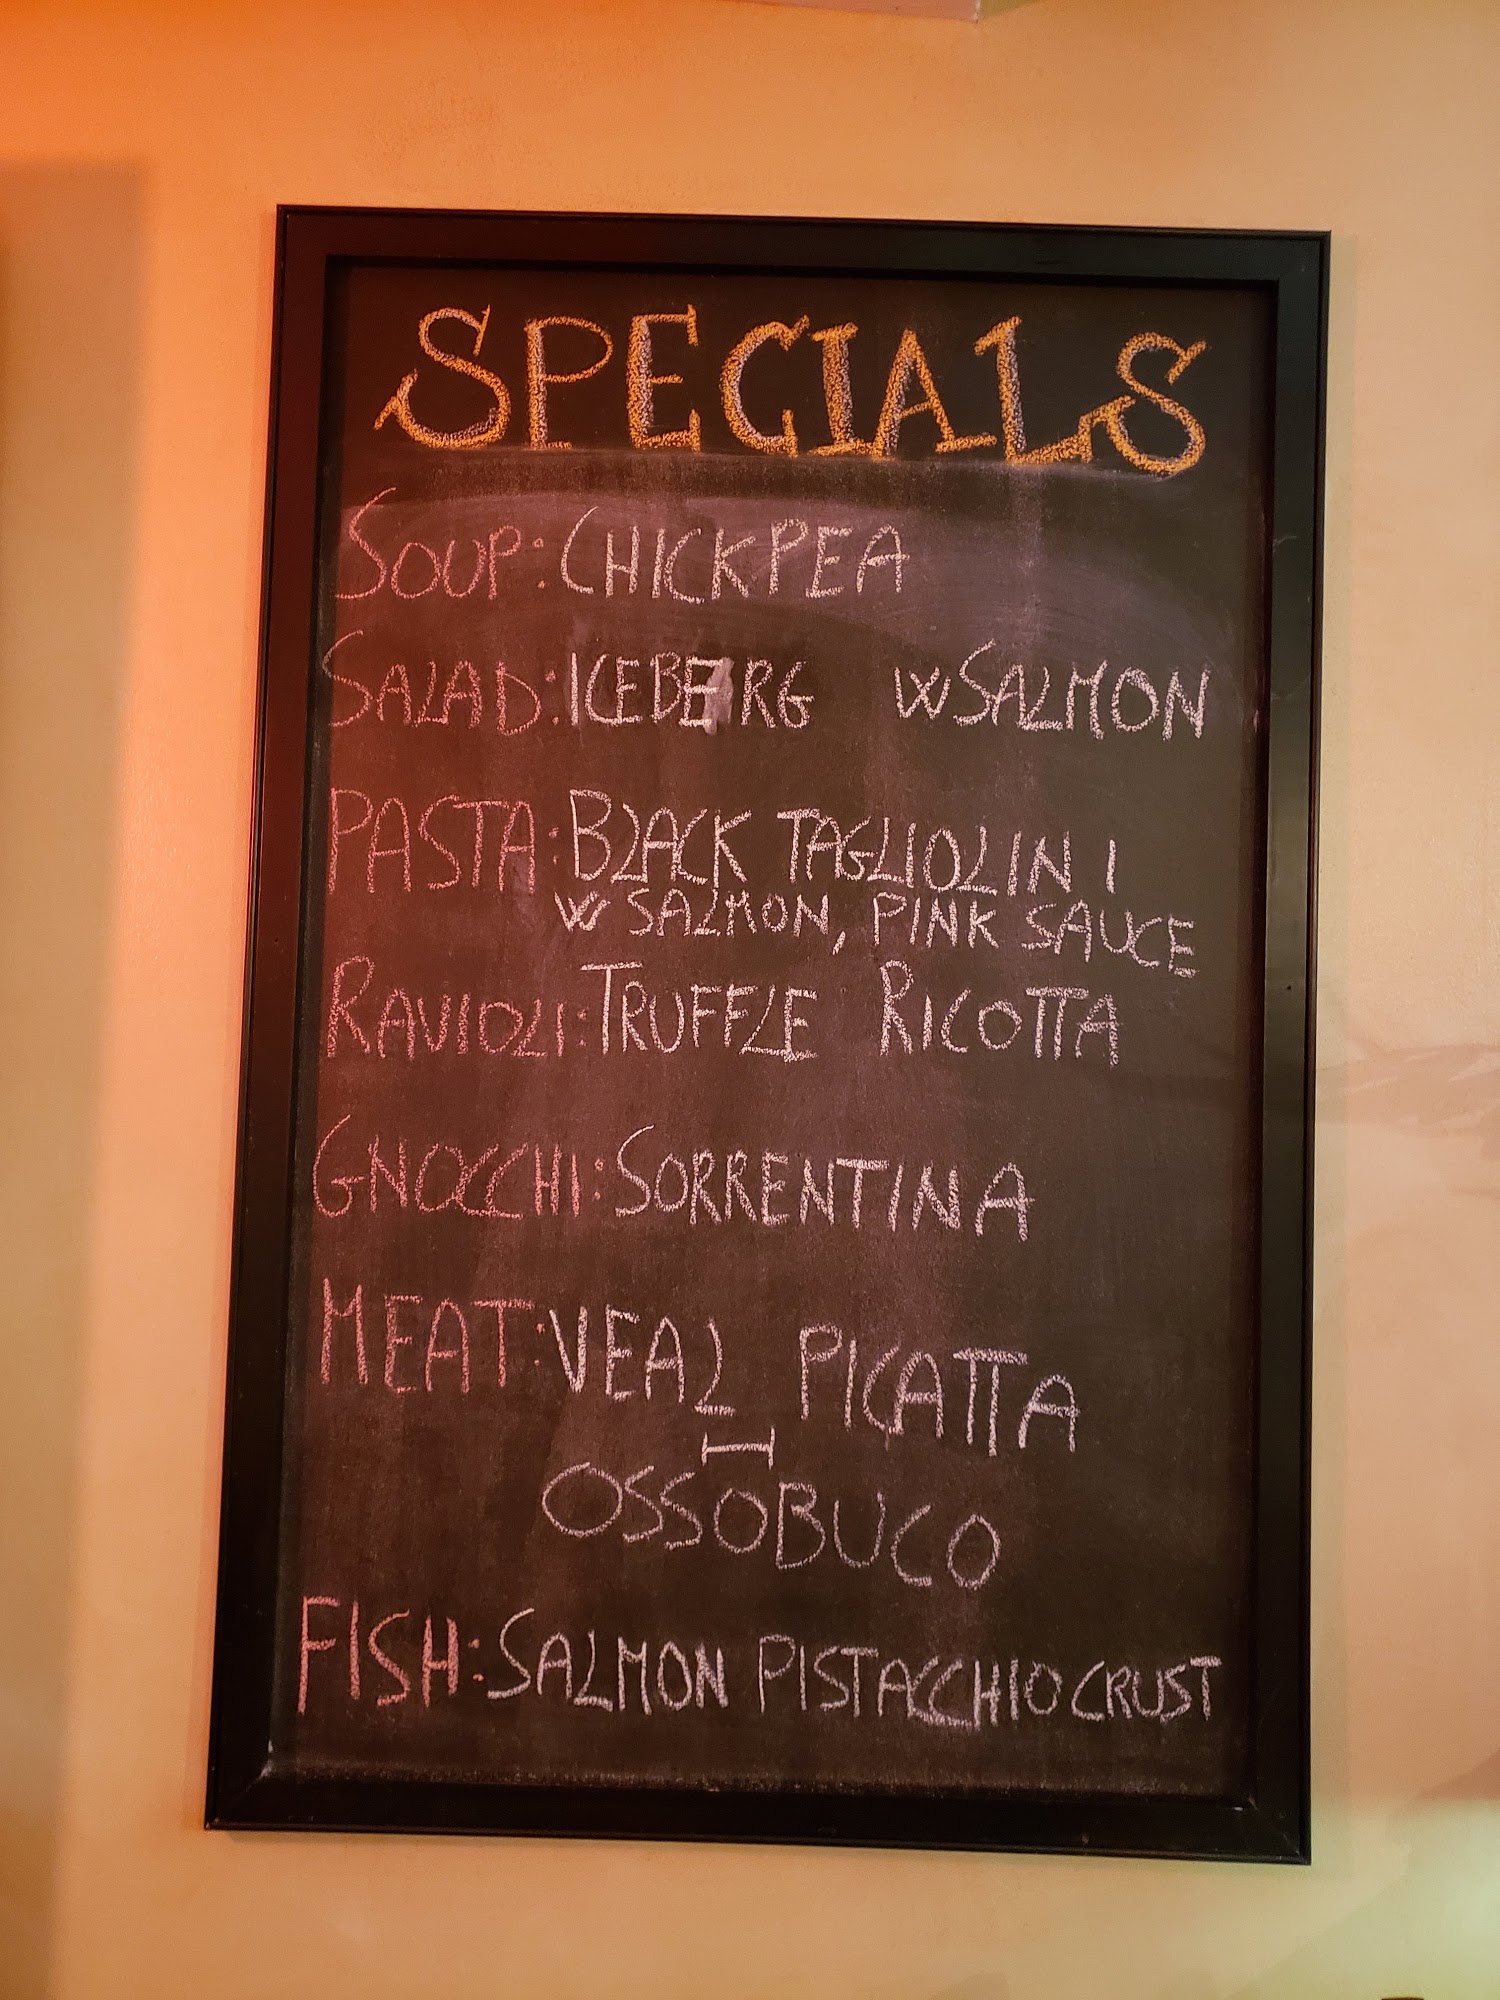 SPECIALS
SOUP: CHICKPEA
SALAD: ICEBERG W SALMON
PASTA: BLACK TAGLIOLINI
W SALMON, PINK SAUCE
RAVIOLI: TRUFFLE RICOTTA
GNOCCHI: SORRENTINA
MEAT: VEAL PICATTA
OSSOBUCO
FISH: SALMON PISTACCHIO CRUST